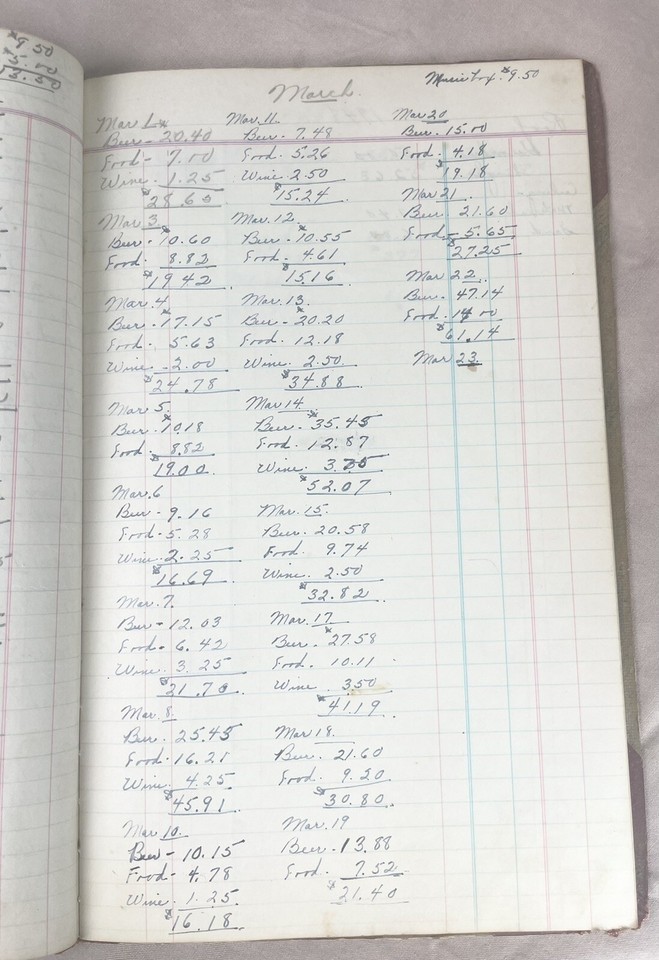 $9.50
5.00
13.50
March
Music box $9.50
Mar 1
Beer - 20.40
Food - 7.00
Wine - 1.25
$28.65
Mar 3
Beer - 10.60
Food - 8.82
$19.42
Mar. 4
Beer - 17.15
Food - 5.63
Wine - 2.00
$24.78
Mar. 5
Beer - 10.18
Food - 8.82
$19.00
Mar. 6
Beer - 9.16
Food - 5.28
Wine - 2.25
$16.69
Mar. 7.
Beer - 12.03
Food - 6.42
Wine 3.25
$21.70
Mar. 8
Beer - 25.45
Food - 16.21
Wine - 4.25
$45.91
Mar 10
Beer - 10.15
Food - 4.78
Wine - 1.25
$16.18
Mar. 11
Beer - 7.48
Food - 5.26
Wine 2.50
$15.24
Mar. 12.
Beer - 10.55
Food - 4.61
$15.16
Mar. 13.
Beer - 20.20
Food - 12.18
Wine - 2.50
$34.88
Mar 14
Beer - 35.45
Food - 12.87
Wine - 3.75
$52.07
Mar. 15.
Beer - 20.58
Food. 9.74
Wine. 2.50
$32.82
Mar. 17
Beer - 27.58
Food. 10.11
Wine. 3.50
$41.19
Mar 18.
Beer. 21.60
Food. 9.20
$30.80
Mar. 19
Beer - 13.88
Food. 7.52
$21.40
Mar 20
Beer. 15.00
Food. 4.18
$19.18
Mar 21
Beer. 21.60
Food - 5.65
$27.25
Mar 22
Beer - 47.14
Food - 14.00
$61.14
Mar 23.